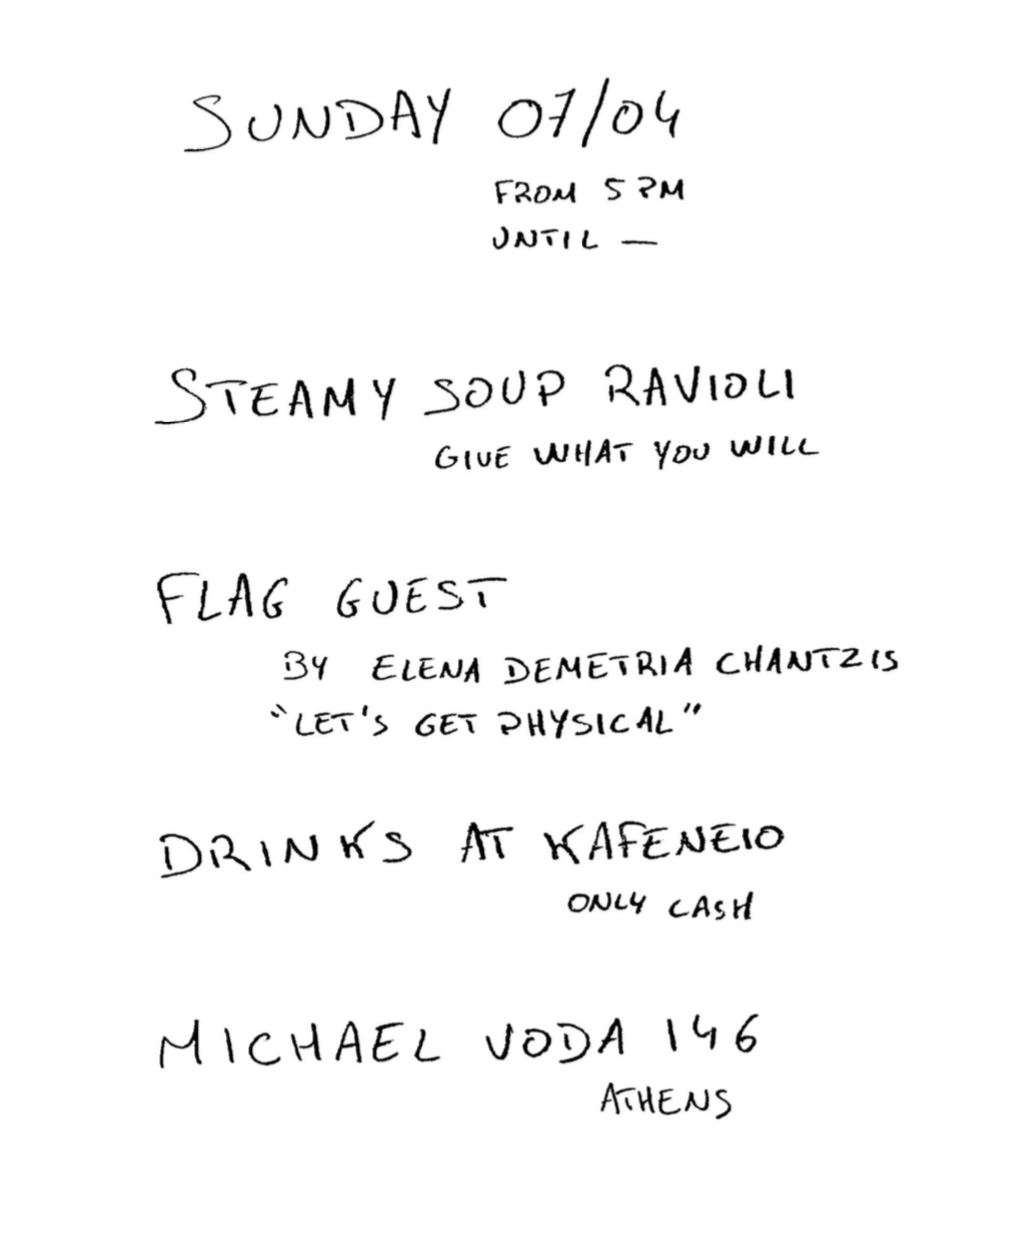 SUNDAY 07/04
FROM 5 PM
UNTIL —
STEAMY SOUP RAVIOLI
GIVE WHAT YOU WILL
FLAG GUEST
BY ELENA DEMETRIA CHANTZIS
“LET'S GET PHYSICAL”
DRINKS AT KAFENEIO
ONLY CASH
MICHAEL VODA 146
ATHENS